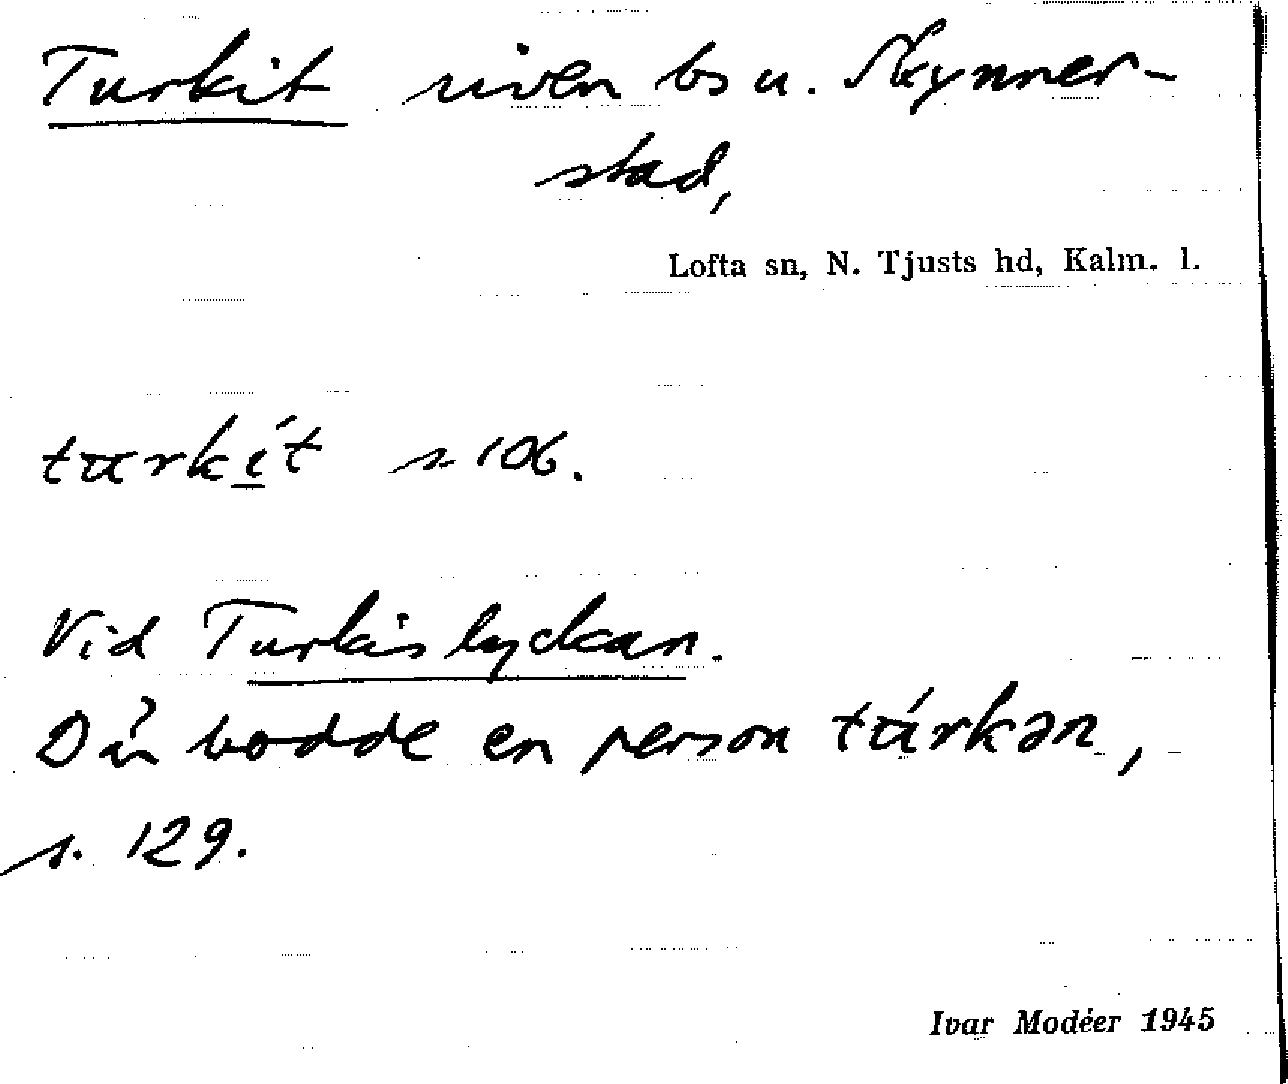 Turkit riven bs u. Skynner-
stad,
Lofta sn, N. Tjusts hd, Kalm. l.
turkít s. 106.
Vid Turkislyckan.
Där bodde en person túrkən,
s. 129.
Ivar Modéer 1945